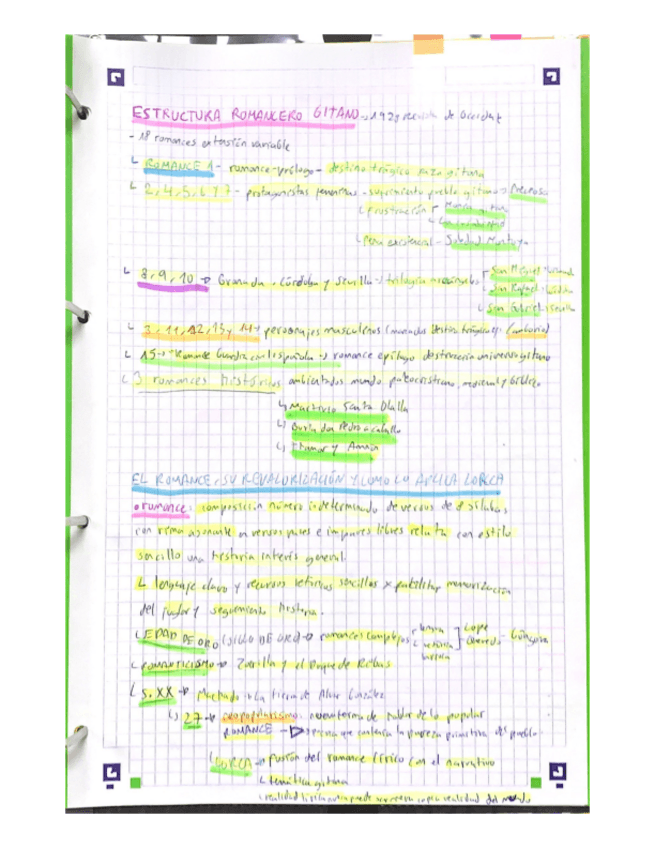 ESTRUCTURA ROMANCERO GITANO → 1928 revista de Occident
- 18 romances extensión variable
ROMANCE 1 - romance-prólogo - destino trágico raza gitana
2, 4, 5, 6 y 7 - protagonistas femeninas - sufrimiento pueblo gitano → Preciosa
frustración
Pena existencial - Soledad Montoya
8, 9, 10 → Granada, Córdoba y Sevilla → trilogía arcángeles
San Miguel - Granada
San Rafael - Córdoba
San Gabriel - Sevilla
3, 11, 12, 13 y 14 → personajes masculinos (marcados destino trágico)
15 → "Romance Guardia civil española → romance epílogo destrucción universo gitano
3 romances históricos ambientados mundo paleocristiano, medieval y bíblico
Martirio Santa Olalla
Burla don Pedro a caballo
Thamar y Amnón
EL ROMANCE, SU REVALORIZACIÓN Y COMO LO APLICA LORCA
romance: composición número indeterminado de versos de 8 sílabas
con rima asonante en versos pares e impares libres relata con estilo
sencillo una historia interés general.
lenguaje claro y recursos retóricos sencillos x facilitar memorización
del juglar y seguimiento historia.
EDAD DE ORO (SIGLO DE ORO → romances complejos
Lope
Quevedo
Góngora
ROMANTICISMO → Zorrilla y el Duque de Rivas
S. XX → Machado → La tierra de Alvar González
27 → neopopularismo: nueva forma de hablar de lo popular
ROMANCE → poema que contenía la pureza primitiva del pueblo
LORCA → fusión del romance lírico con el narrativo
temática gitana